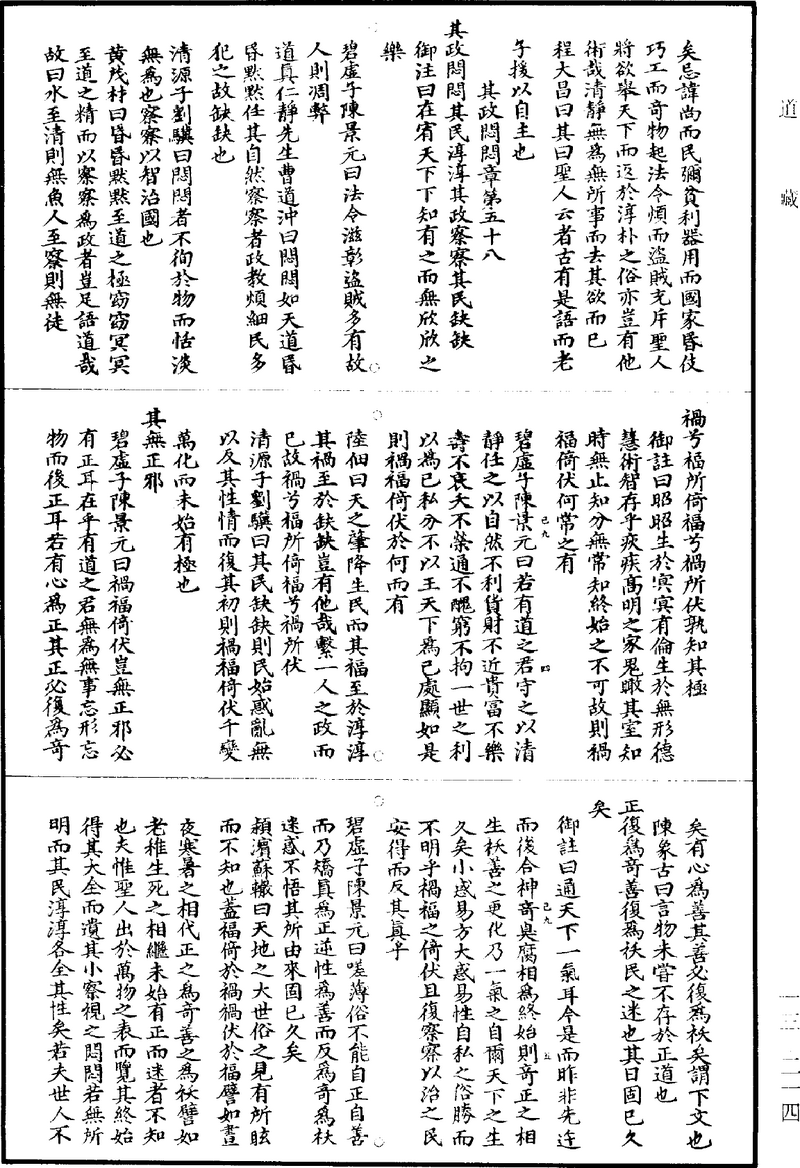 道藏
矣忌諱尚而民彌貧利器用而國家昏伎
巧工而奇物起法令煩而盜賊充斥聖人
將欲舉天下而返於淳朴之俗亦豈有他
術哉清靜無為無所事而去其欲而已
程大昌曰其曰聖人云者古有是語而老
子援以自主也
其政悶悶章第五十八
其政悶悶其民淳淳其政察察其民缺缺
御注曰在宥天下下知有之而無欣欣之
樂
碧虛子陳景元曰法令滋彰盜賊多有故
人則凋弊
道真仁靜先生曹道沖曰悶悶如天道昏
昏默默任其自然察察者政教煩細民多
犯之故缺缺也
清源子劉驥曰悶悶者不徇於物而恬淡
無為也察察以智治國也
黃茂材曰昏昏默默至道之極窈窈冥冥
至道之精而以察察為政者豈足語道哉
故曰水至清則無魚人至察則無徒
禍兮福所倚福兮禍所伏孰知其極
御註曰昭昭生於冥冥有倫生於無形德
慧術智存乎疢疾高明之家鬼瞰其室知
時無止知分無常知終始之不可故則禍
福倚伏何常之有
碧虛子陳景元曰若有道之君守之以清
靜任之以自然不利貨財不近貴富不樂
壽不哀夭不榮通不醜窮不拘一世之利
以為己私分不以王天下為已處顯如是
則禍福倚伏於何而有
陸佃曰天之肇降生民而其福至於淳淳
其禍至於缺缺豈有他哉繫一人之政而
已故禍兮福所倚福兮禍所伏
清源子劉驥曰其民缺缺則民始惑亂無
以反其性情而復其初則禍福倚伏千變
萬化而未始有極也
其無正邪
碧虛子陳景元曰禍福倚伏豈無正邪必
有正耳在乎有道之君無為無事忘形忘
物而後正耳若有心為正其正必復為奇
矣有心為善其善必復為祅矣謂下文也
陳象古曰言物未嘗不存於正道也
正復為奇善復為祅民之迷也其日固已久
矣
御註曰通天下一氣耳今是而昨非先迕
而後合神奇臭腐相為終始則奇正之相
生祅善之更化乃一氣之自爾天下之生
久矣小惑易方大惑易性自私之俗勝而
不明乎禍福之倚伏且復察察以治之民
安得而反其真乎
碧虛子陳景元曰嗟薄俗不能自正自善
而乃矯真為正逆性為善而反為奇為祅
迷惑不悟其所由來固已久矣
潁濱蘇轍曰天地之大世俗之見有所眩
而不知也蓋福倚於禍禍伏於福譬如晝
夜寒暑之相代正之為奇善之為祅譬如
老稚生死之相繼未始有正而迷者不知
也夫惟聖人出於萬物之表而覽其終始
得其大全而遺其小察視之悶悶若無所
明而其民淳淳各全其性矣若夫世人不
己九
四
己九
五
一三—二一四